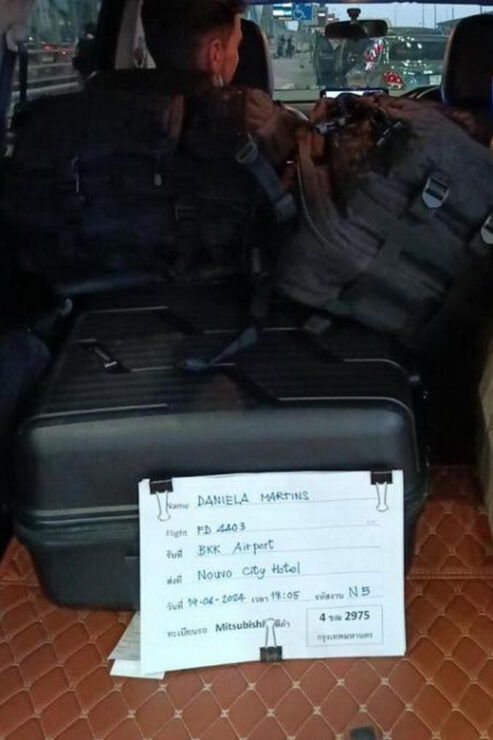 Name DANIELA MARTINS
Flight FD 4403
รับที่ BKK Airport
ส่งที่ Nouvo City Hotel
วันที่ 19-04-2024 เวลา 18:05 รหัสงาน N5
ทะเบียนรถ Mitsubishi สีดำ
4 ขณ 2975
กรุงเทพมหานคร